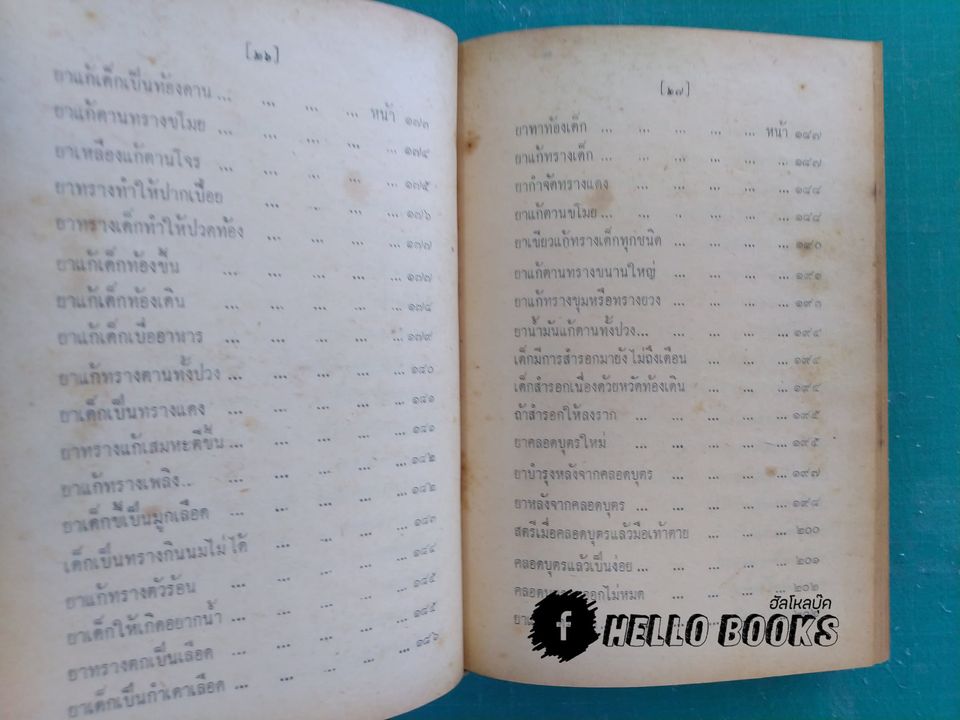 [๒๖]
ยาแก้เด็กเป็นท้องดาน ... ... ... ... หน้า ๑๗๓
ยาแก้ตานทรางขโมย ... ... ... ... ๑๗๔
ยาเหลืองแก้ตานโจร ... ... ... ... ๑๗๕
ยาทรางทำให้ปากเปื่อย ... ... ... ๑๗๖
ยาทรางเด็กทำให้ปวดท้อง ... ... ... ๑๗๗
ยาแก้เด็กท้องขึ้น ... ... ... ... ๑๗๗
ยาแก้เด็กท้องเดิน ... ... ... ... ๑๗๘
ยาแก้เด็กเบื่ออาหาร ... ... ... ... ๑๗๙
ยาแก้ทรางตานทั้งปวง ... ... ... ... ๑๘๐
ยาเด็กเป็นทรางแดง ... ... ... ... ๑๘๑
ยาทรางแก้เสมหะตีขึ้น ... ... ... ... ๑๘๑
ยาแก้ทรางเพลิง... ... ... ... ... ๑๘๒
ยาเด็กขี้เป็นมูกเลือด ... ... ... ... ๑๘๒
เด็กเป็นทรางกินนมไม่ได้ ... ... ... ๑๘๓
ยาแก้ทรางตัวร้อน ... ... ... ... ๑๘๔
ยาเด็กให้เกิดอยากน้ำ ... ... ... ... ๑๘๕
ยาทรางตกเป็นเลือด ... ... ... ... ๑๘๕
ยาเด็กเป็นกำเดาเลือด ... ... ... ... ๑๘๖
[๒๗]
ยาทาท้องเด็ก ... ... ... ... หน้า ๑๘๗
ยาแก้ทรางเด็ก ... ... ... ... ... ๑๘๗
ยากำจัดทรางแดง ... ... ... ... ๑๘๘
ยาแก้ตานขโมย ... ... ... ... ... ๑๘๘
ยาเขียวแก้ทรางเด็กทุกชนิด ... ... ... ... ๑๙๐
ยาแก้ตานทรางขนานใหญ่ ... ... ... ๑๙๑
ยาแก้ทรางขุมหรือทรางยวง ... ... ... ๑๙๓
ยาน้ำมันแก้ตานทั้งปวง... ... ... ... ๑๙๔
เด็กมีการสำรอกมายังไม่ถึงเดือน ... ... ... ๑๙๔
เด็กสำรอกเนื่องด้วยหวัดท้องเดิน ... ... ... ๑๙๔
ถ้าสำรอกให้ลงราก ... ... ... ... ๑๙๕
ยาคลอดบุตรใหม่ ... ... ... ... ๑๙๕
ยาบำรุงหลังจากคลอดบุตร ... ... ... ๑๙๗
ยาหลังจากคลอดบุตร ... ... ... ... ๑๙๘
สตรีเมื่อคลอดบุตรแล้วมือเท้าตาย ... ... ... ๒๐๐
คลอดบุตรแล้วเป็นง่อย ... ... ... ... ๒๐๑
ออกไม่หมด ... ... ... ... ๒๐๒
ฮัลโหลบุ๊ค
f HELLO BOOKS